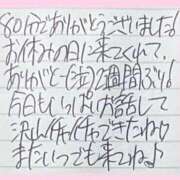 80分でありがとうございました!
お休みの日に来てくれて、
ありがとー(泣)2週間ぶり!
今日もいっぱいお話して
沢山イチャイチャできたね♡
またいつでも来てね♪